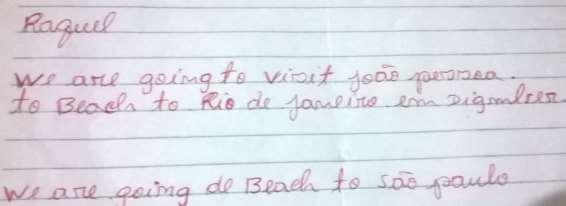 Raquel
We are going to visit joão pessoa.
to Beach to Rio de janeiro em
We are going do Beach to são paulo